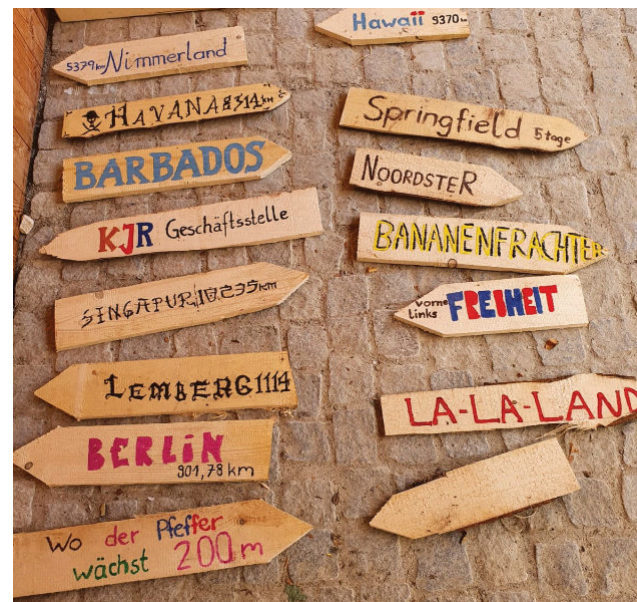 5379km Nimmerland
HAVANA 8314km
BARBADOS
KJR Geschäftsstelle
SINGAPUR 10.235km
LEMBERG 1114
BERLIN
901,78 km
Wo der Pfeffer
wächst 200m
Hawaii
Springfield 5 tage
NOORDSTER
BANANENFRACHTER
vorne
links FREIHEIT
LA-LA-LAND